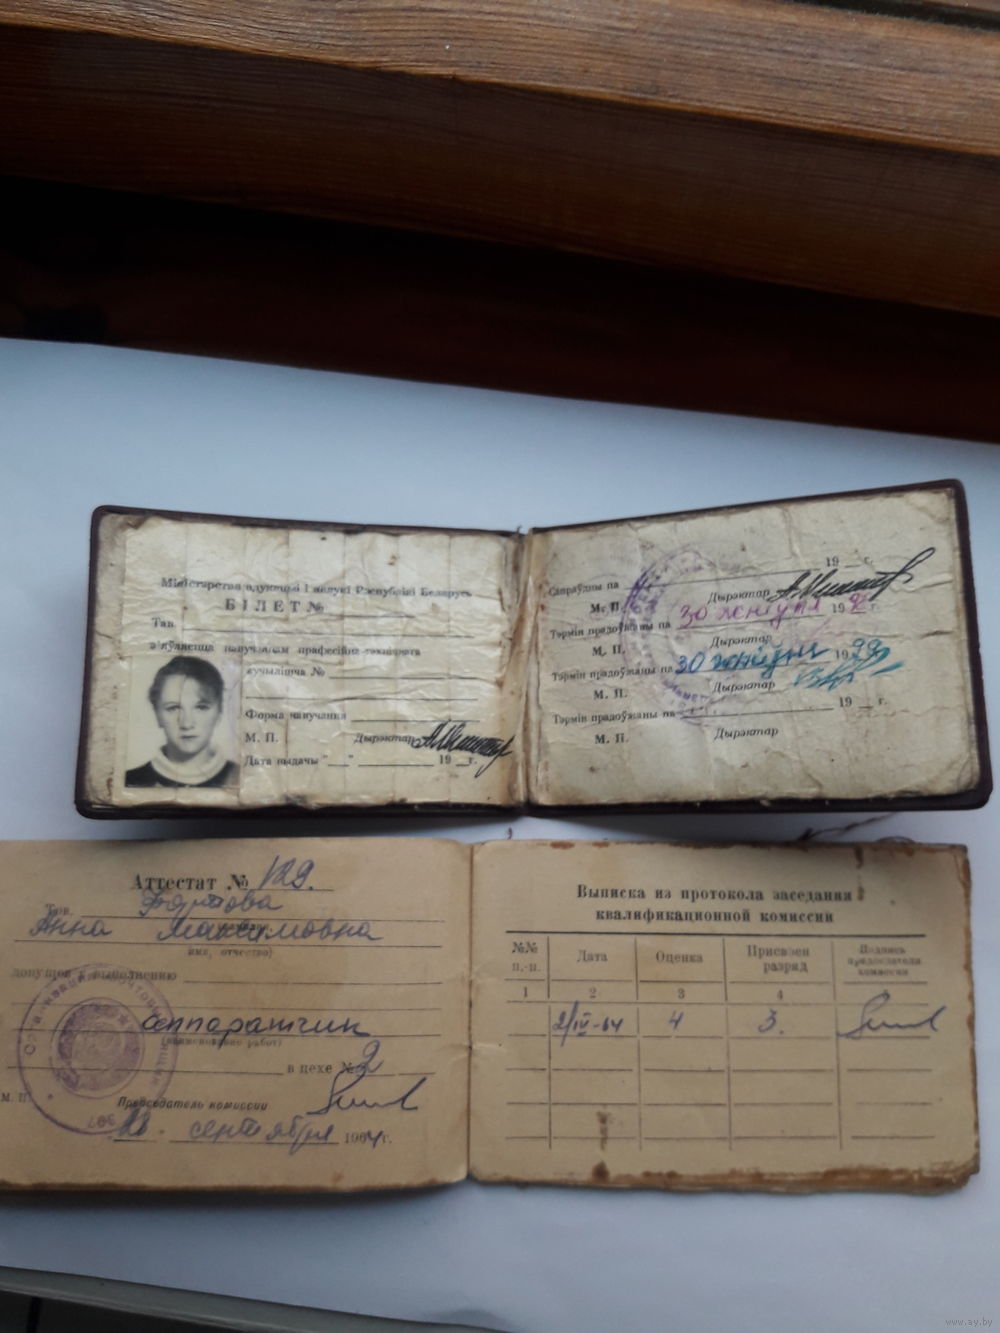 Міністэрства адукацыі і навукі Рэспублікі Беларусь
БІЛЕТ №
Тав.
з'яўляецца навучэнцам прафесійна-тэхнічнага
вучылішча №
Форма навучання
М. П. Дырэктар
Дата выдачы "__" 19 __ г.
Сапраўдны па 19 __ г.
М. П. Дырэктар
Тэрмін прадоўжаны па 30 19 г.
М. П. Дырэктар
Тэрмін прадоўжаны па 30 19
М. П. Дырэктар
Тэрмін прадоўжаны па 19 __ г.
М. П. Дырэктар
Аттестат № 129.
Тов.
Анна Максимовна
имя, отчество)
допущен к выполнению
аппаратчик
(наименование работ)
в цехе № 2
М. П. Председатель комиссии
сентября 1964 г.
Выписка из протокола заседания
квалификационной комиссии
№№ п.-п. Дата Оценка Присвоен разряд Подпись председателя комиссии
1 2 3 4
2/IV-64 4 3.
www.ay.by